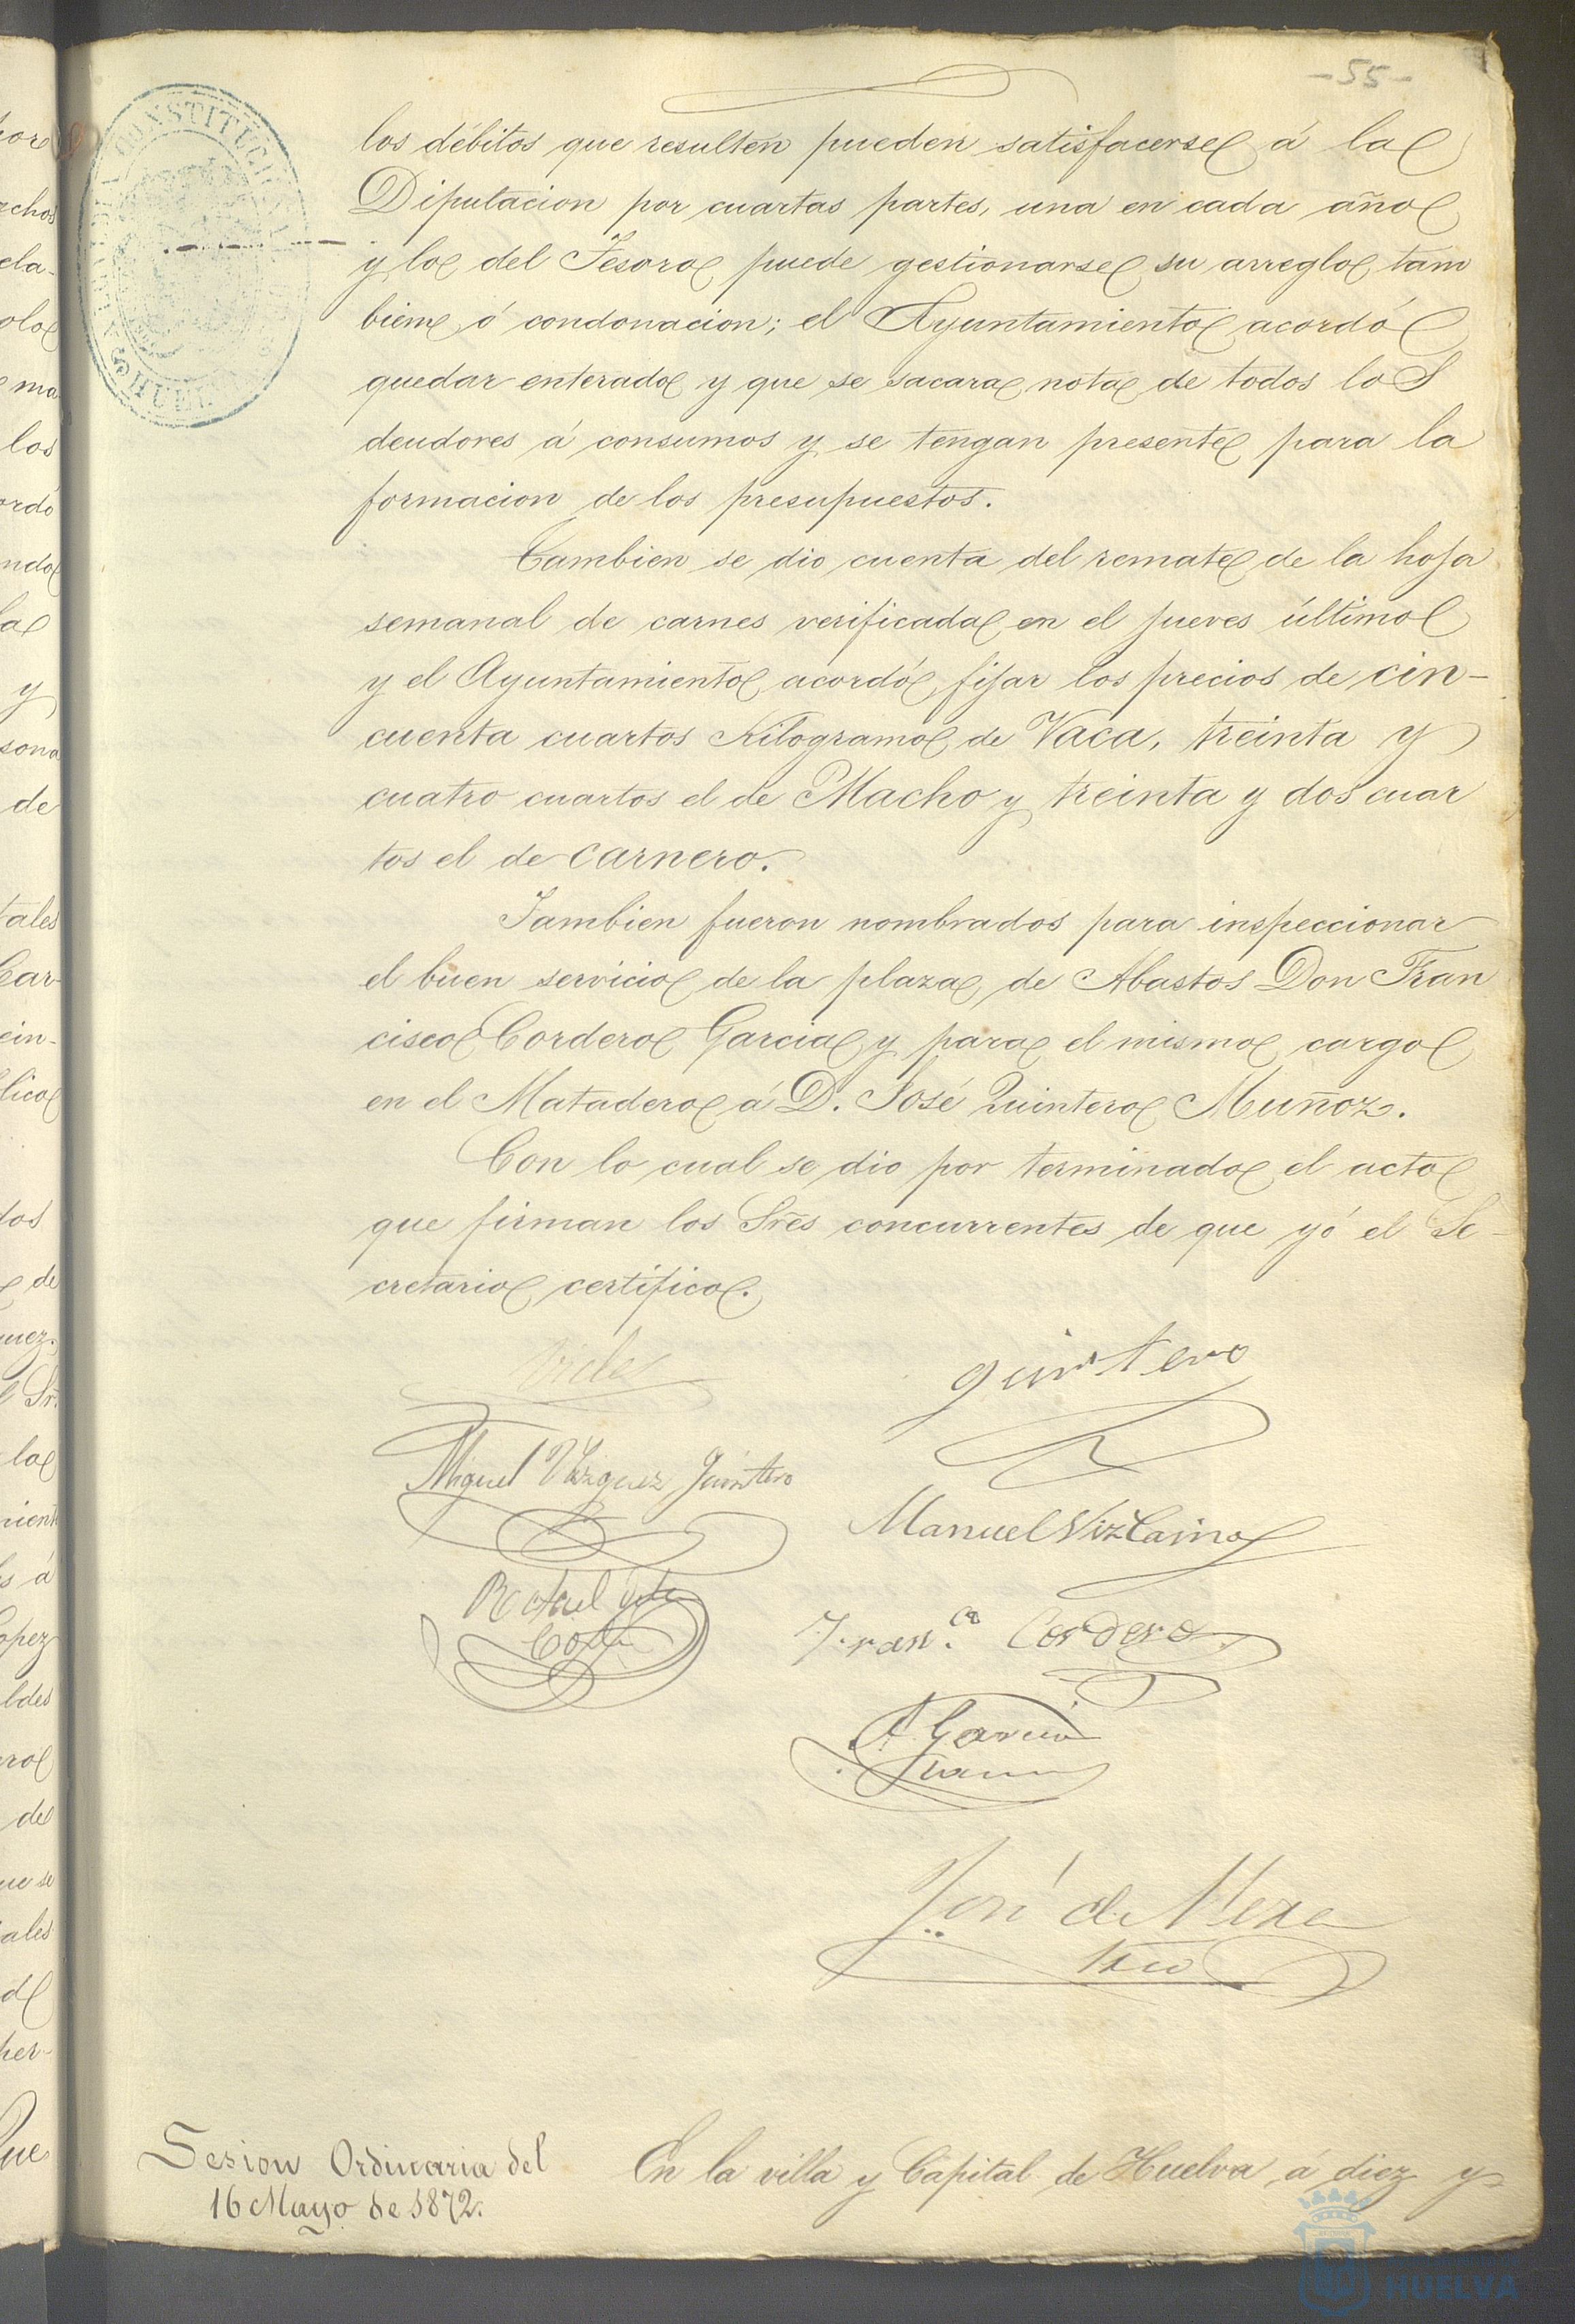 -55-
los débitos que resulten pueden satisfacerse á la
Diputacion por cuartas partes, una en cada año
y lo del Tesoro puede gestionarse su arreglo tam
bien ó condonacion; el Ayuntamiento acordó
quedar enterado y que se sacara nota de todos los
deudores á consumos y se tengan presente para la
formacion de los presupuestos.
Tambien se dio cuenta del remate de la hoja
semanal de carnes verificada en el jueves último
y el Ayuntamiento acordó fijar los precios de cin-
cuenta cuartos Kilogramo de Vaca, treinta y
cuatro cuartos el de Macho y treinta y dos cuar
tos el de carnero.
Tambien fueron nombrados para inspeccionar
el buen servicio de la plaza de Abastos Don Fran
cisco Cordero Garcia y para el mismo cargo
en el Matadero á D. José Quintero Muñoz.
Con lo cual se dio por terminado el acto
que firman los Sres concurrentes de que yó el Se-
cretario certifico.
Quintero
Miguel Vazquez Quintero
Manuel Vizcaino
Rafael
Fran.co Cordero
A. Garcia
José de Mexa
Srio
Sesion Ordinaria del
16 Mayo de 1872.
En la villa y Capital de Huelva á diez y
HUELVA